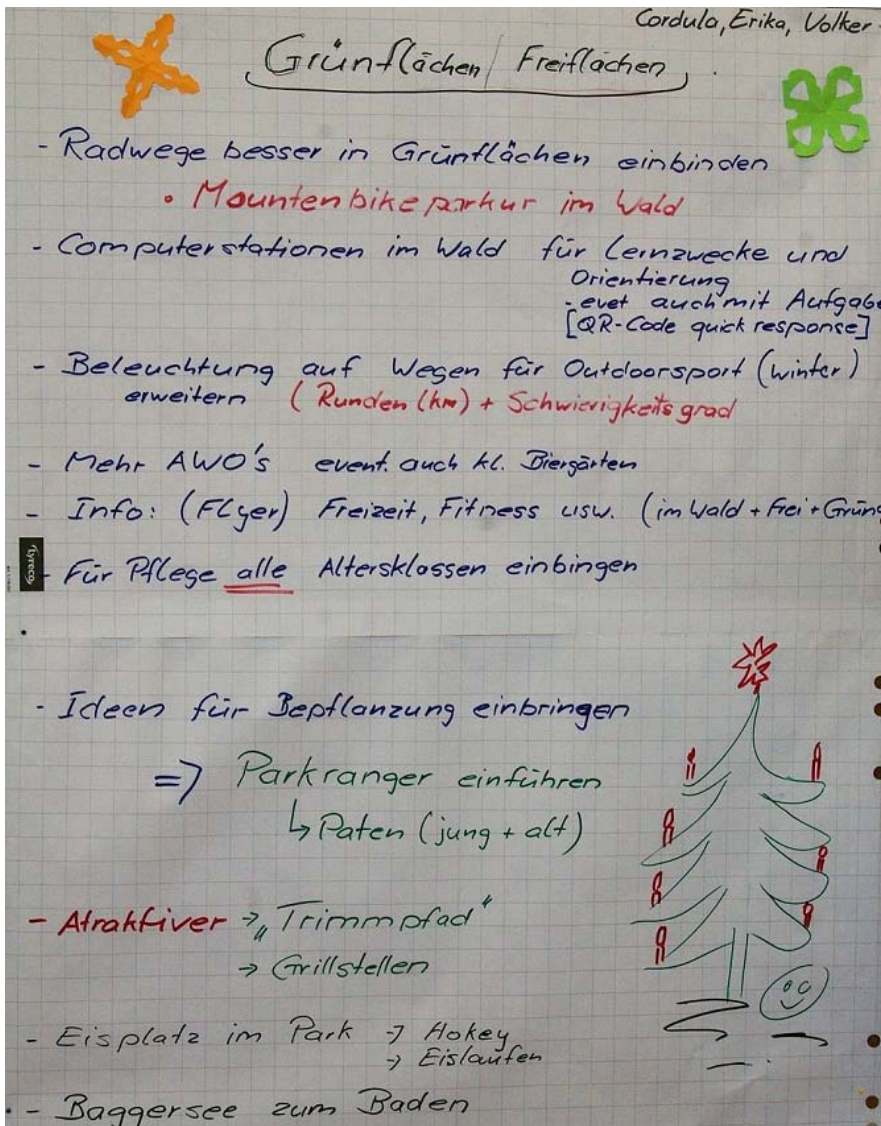 Cordula, Erika, Volker
Grünflächen / Freiflächen
- Radwege besser in Grünflächen einbinden
• Mountenbikeparkur im Wald
- Computerstationen im Wald für Lernzwecke und
Orientierung
- evet auch mit Aufgabe
[QR-Code quick response]
- Beleuchtung auf Wegen für Outdoorsport (winter)
erweitern (Runden (km) + Schwierigkeitsgrad
- Mehr AWO's event. auch kl. Biergärten
- Info: (Flyer) Freizeit, Fitness usw. (im Wald + Frei + Grün
- Für Pflege alle Altersklassen einbingen
Lyreco
- Ideen für Bepflanzung einbringen
=> Parkranger einführen
↳ Paten (jung + alt)
- Atraktiver → „Trimmpfad"
→ Grillstellen
- Eisplatz im Park → Hokey
→ Eislaufen
- Baggersee zum Baden